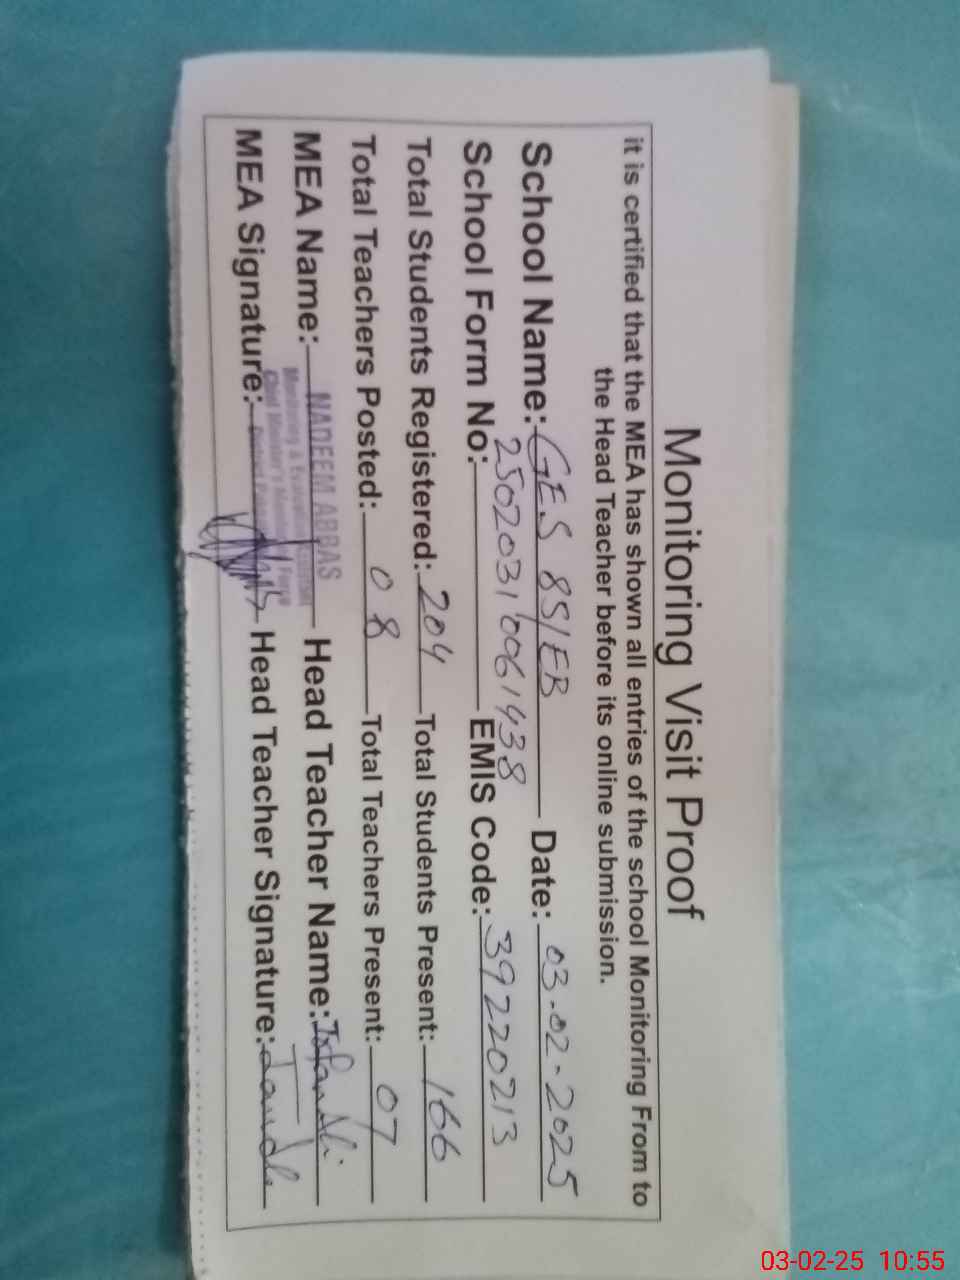 Monitoring Visit Proof
it is certified that the MEA has shown all entries of the school Monitoring From to
the Head Teacher before its online submission.
School Name: GES 85/EB Date: 03-02-2025
School Form No: 25020310061438 EMIS Code: 39220213
Total Students Registered: 204 Total Students Present: 166
Total Teachers Posted: 08 Total Teachers Present: 07
MEA Name: NADEEM ABBAS Head Teacher Name: Irfan Ali
Monitoring & Evaluation
Chief Minister's Monitoring Force
MEA Signature: Head Teacher Signature:
03-02-25 10:55